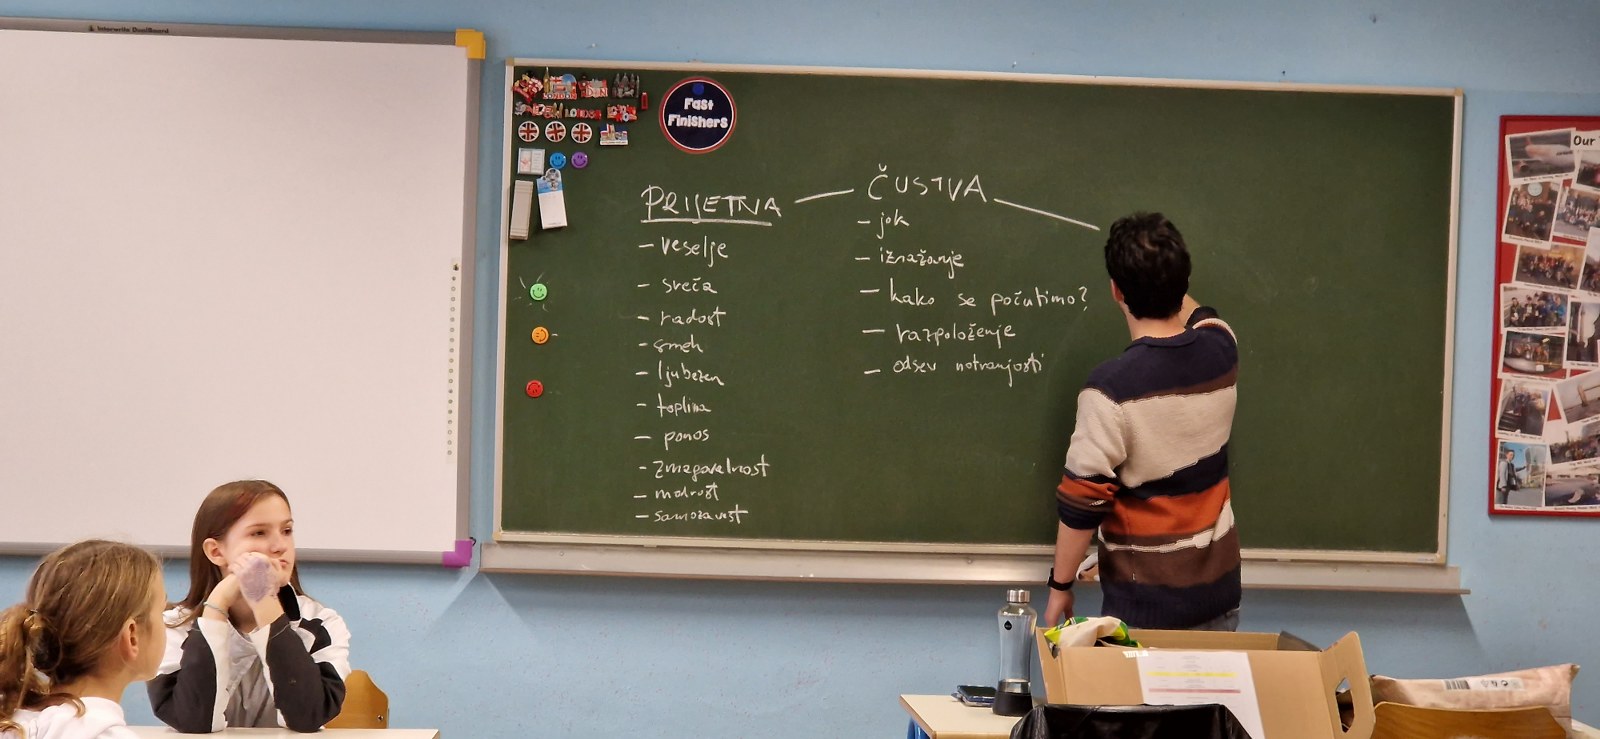 Interwrite DualBoard
Fast
Finishers
PRIJETNA
- veselje
- sreča
- radost
- smeh
- ljubezen
- toplina
- ponos
- zmagovalnost
- modrost
- samozavest
ČUSTVA
- jok
- izražanje
- kako se počutimo?
- razpoloženje
- odsev notranjosti
Our